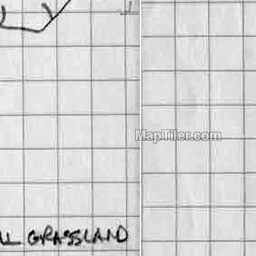 MapTiler.com
AL GRASSLAND